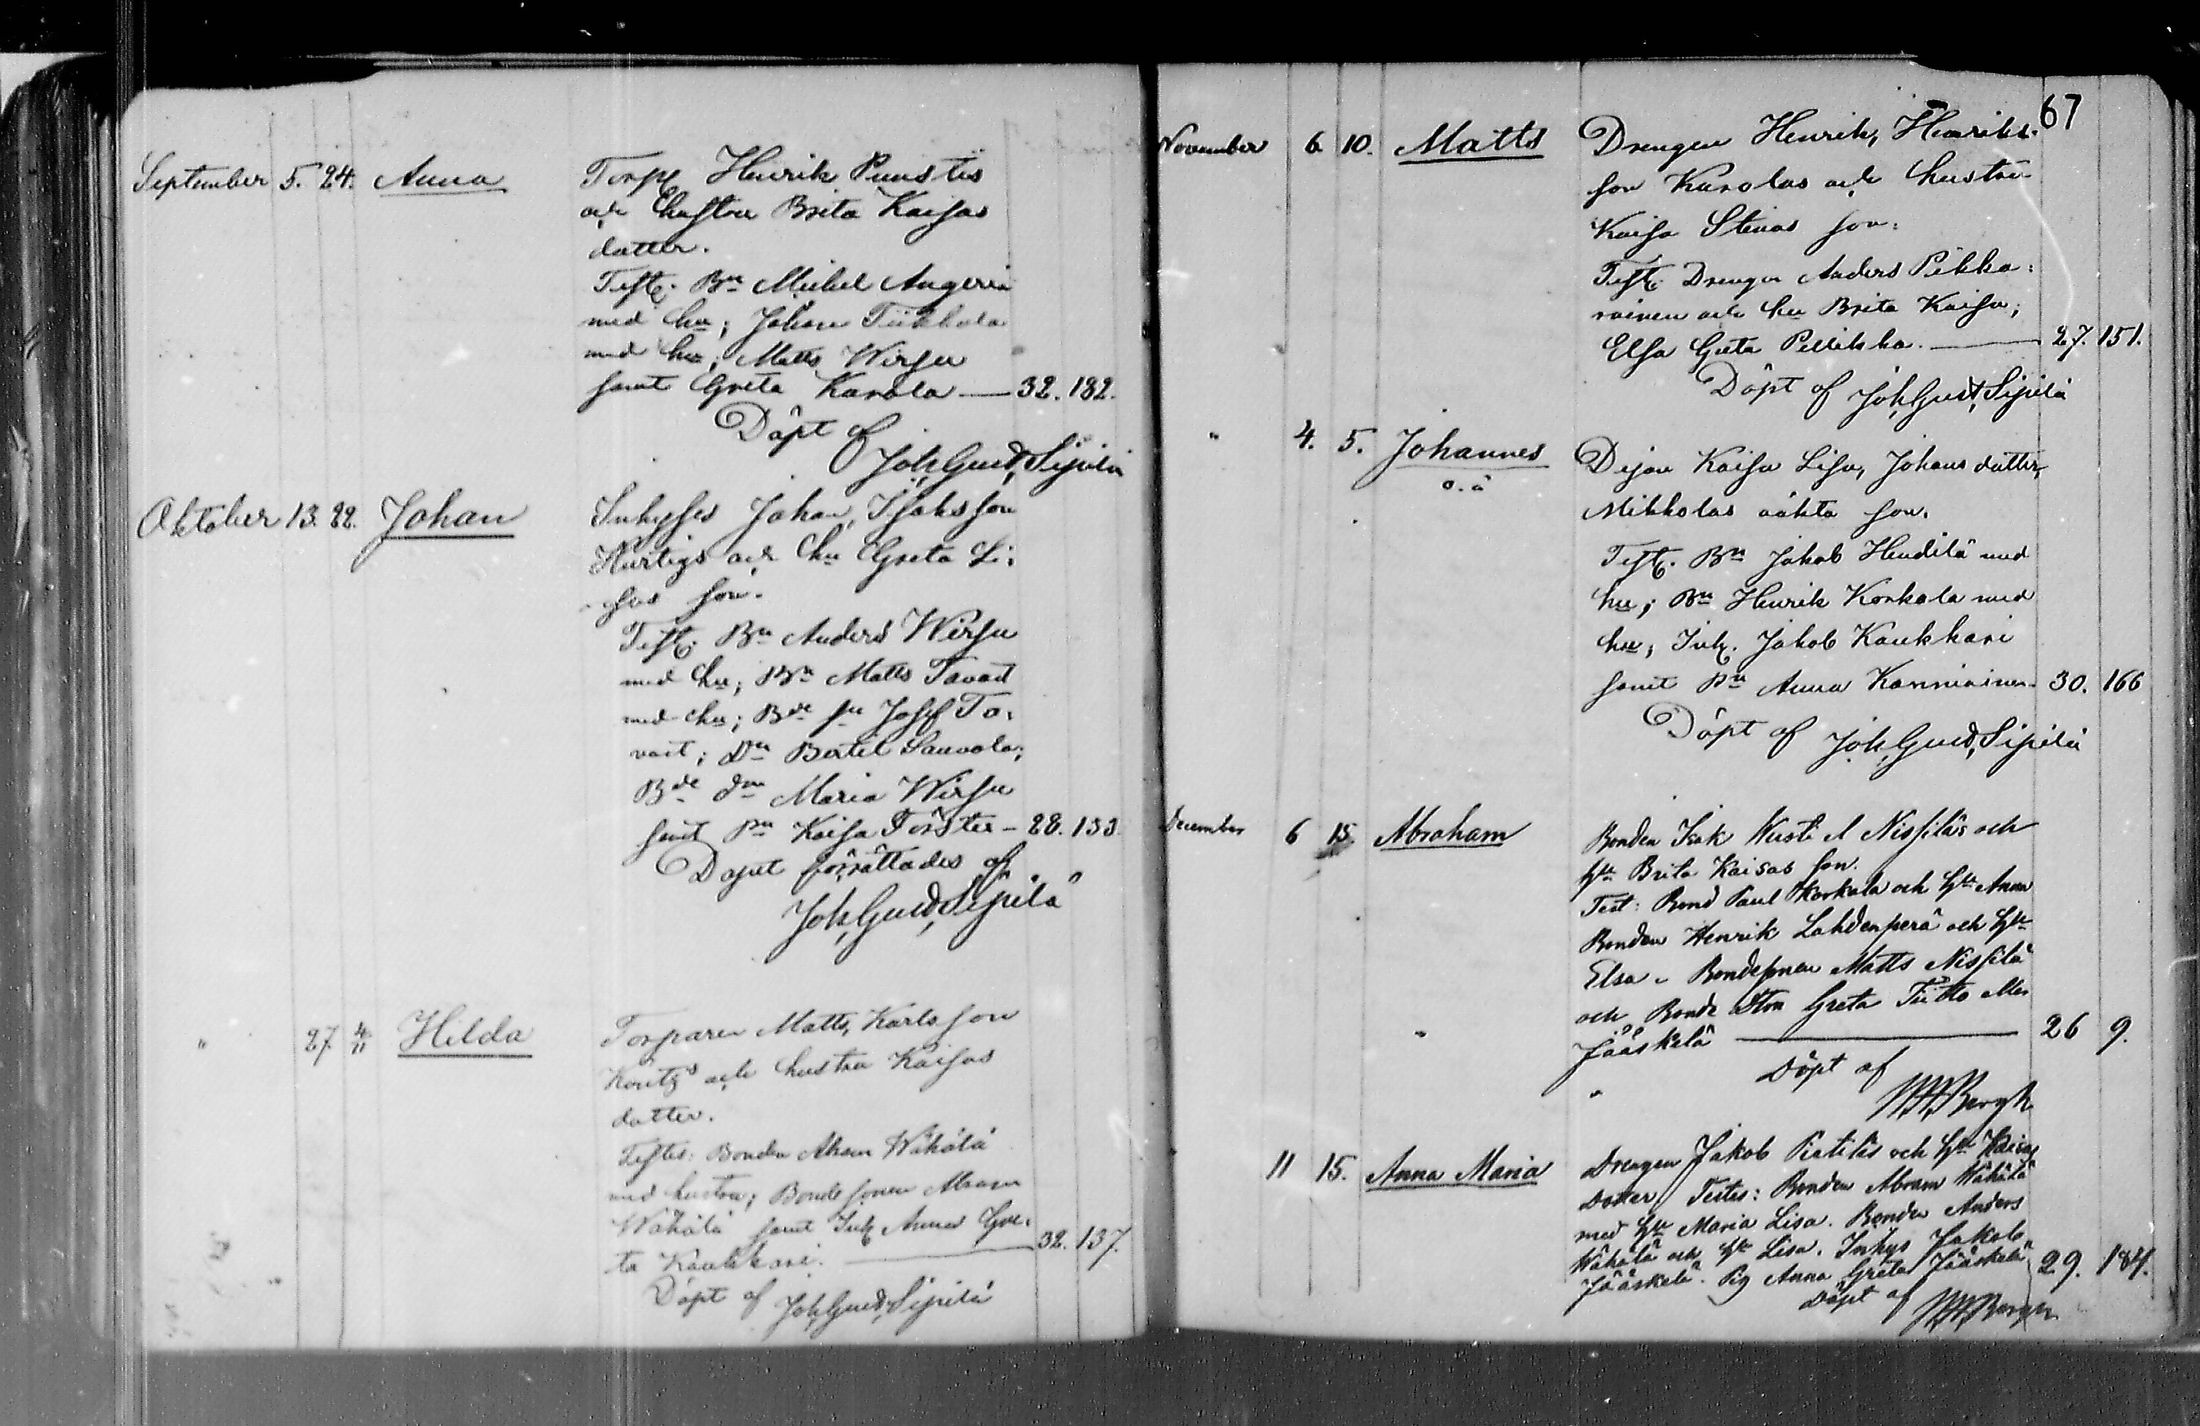 September 5. 24. Anna Torp. Henrik Puustis
och hustru Brita Kaisas
datter.
Test. Bn Mickel Angeria
med hu; Johan Tiikkala
med hu; Matts Wirsu
samt Greta Karola — 32. 182.
Döpt af
Joh. Gust. Sipilä
Oktober 13. 22. Johan Inhyses Johan, Isaksson
Hurtigs och hu Greta Li-
sas son.
Test. Bn Anders Wirsu
med hu; Bn Matts Tavast
med hu; Bde sn Josef Ta-
vast; Dn Bertel Sauvola;
Bde dn Maria Wirsu
samt Pn Kaisa Förster — 28. 133.
Dopet förrättades af
Joh. Gust. Sipilä
" 27. 4/11 Hilda Torparen Matts, Karlsson
Koritz's och hustru Kaisas
datter.
Testes: Bonden Abram Wähälä
med hustru; Bondesonen Abram
Wähälä samt Inh. Anna Gre-
ta Kaukkari. — 32. 137.
Döpt af Joh. Gust. Sipilä
67
November 6. 10. Matts Drengen Henrik, Henriks-
son Karolas och hustru
Kaisa Stinas son.
Test. Drengen Anders Pikka-
rainen och hu Brita Kaisa;
Elsa Greta Pellikka. — 27. 151.
Döpt af Joh. Gust. Sipilä
" 4. 5. Johannes Dejan Kaisa Lisa, Johans datter,
o.ä Mikkolas oäkta son.
Test. Bn Jakob Heudilä med
hu; Bn Henrik Korkala med
hu; Inh. Jakob Kaukkari
samt Pn Anna Kanniainen 30. 166
Döpt af Joh. Gust. Sipilä
December 6 15. Abraham Bonden Isak Nissiläs och
hu Brita Kaisas son.
Test: Bond Paul Korkala och hu Anna
Bonden Henrik Lahdenperä och hu
Elsa. Bondesonen Matts Nissilä
och Bonde dtrn Greta eller
Jääskelä — 26 9.
" Döpt af
Bergh
11 15. Anna Maria Drengen Jakob Pietiläs och hu Kaisas
Dotter Testes: Bonden Abram Wähälä
med hu Maria Lisa. Bonden Anders
Wähälä och hu Lisa. Inhys Jakob
Jääskelä. Pig Anna Greta Jääskelä 29. 184.
Döpt af Bergh